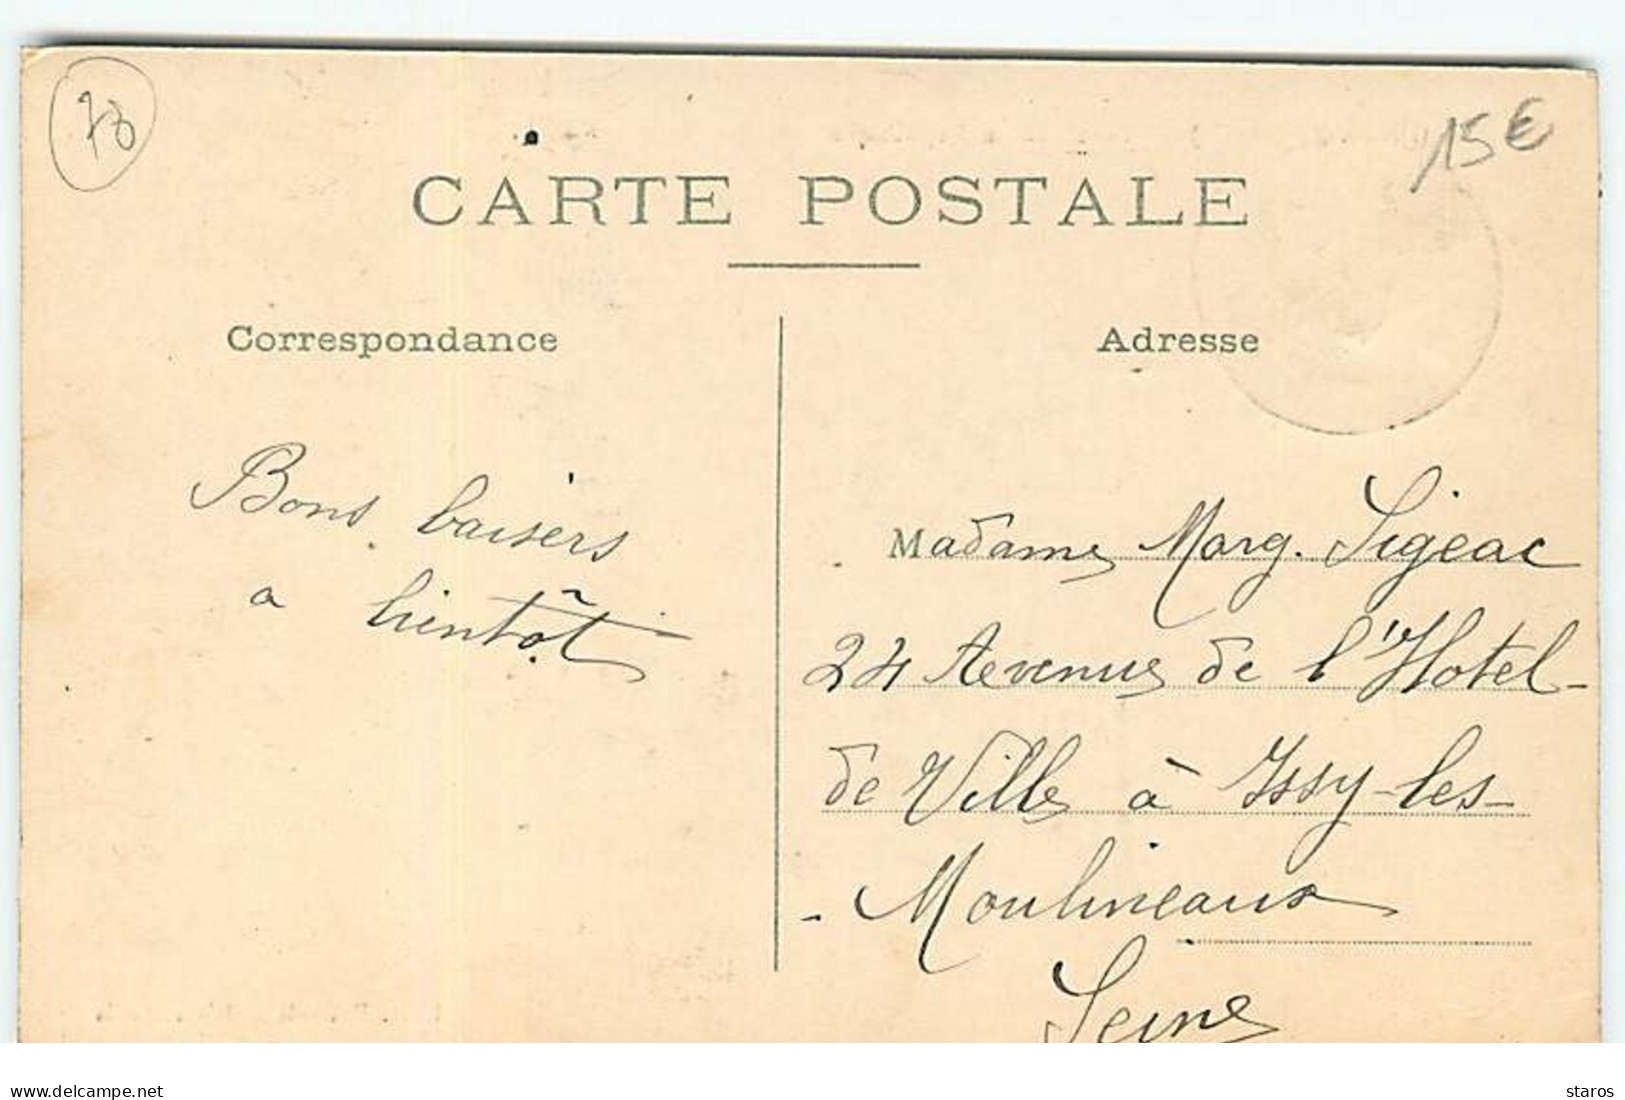 78
15€
CARTE POSTALE
Correspondance
Adresse
Bons baisers
a bientôt
Madame Marg. Sigeac
24 Avenue de l'Hotel-
de Ville à Issy-les-
- Moulineaux
Seine
delcampe.net
staros